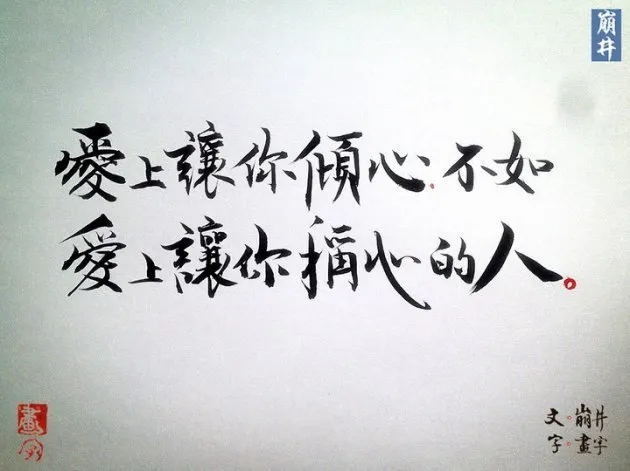 崩井
愛上讓你傾心.不如
愛上讓你稱心的人。
畫字
文。崩井
字。畫字